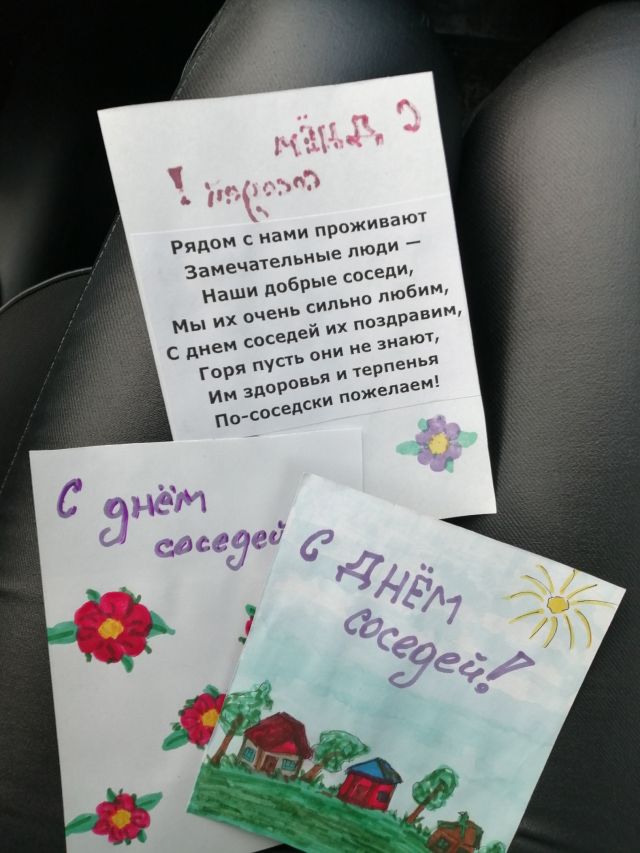 С ДНЁМ
соседей!
Рядом с нами проживают
Замечательные люди —
Наши добрые соседи,
Мы их очень сильно любим,
С днем соседей их поздравим,
Горя пусть они не знают,
Им здоровья и терпенья
По-соседски пожелаем!
С днём
соседей
С ДНЁМ
соседей!